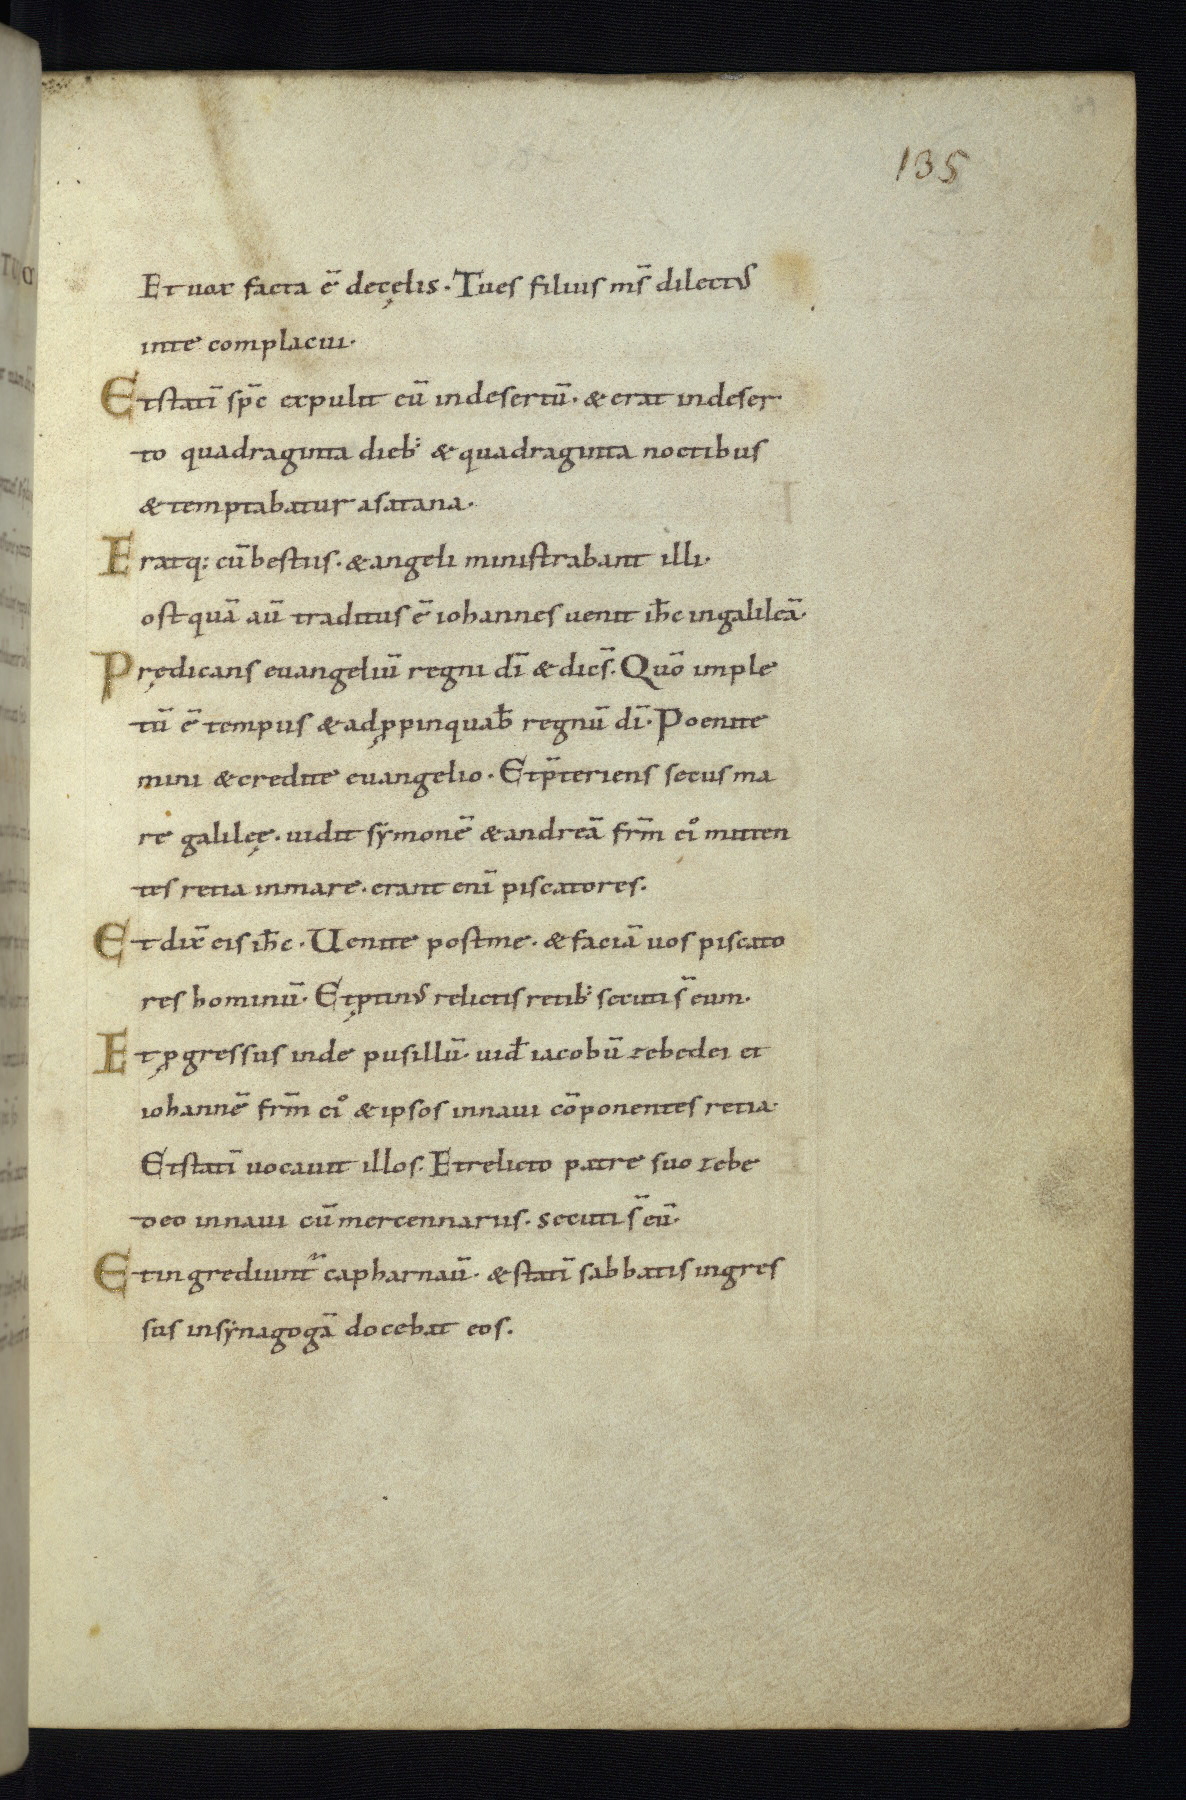 135
Et uox facta ē decęlis. Tues filius ms̄ dilectus
inte complacui.
Etstatī sp̄c expulit eū indesertū. & erat indeser
to quadraginta dieb; & quadraginta noctibus
& temptabatur asatana.
Eratq; cūbestiis. & angeli ministrabant illi.
ostquā aū traditus ē iohannes uenit ih̄c ingalileā.
Prędicans euangeliū regni dī & dics̄. Quō imple
tū ē tempus & adꝓpinquab̄ regnū dī. Poenite
mini & credite euangelio. Etp̄teriens secus ma
re galileę. uidit sẏmonē & andreā frm̄ ei᷒ mitten
tes retia inmare. erant enī piscatores.
Et dix̄ eis ih̄c. Uenite postme. & faciā uos piscato
res hominū. Etꝓtinus relictis retib; secuti s̄ eum.
Etꝓgressus inde pusillū. uid̄ iacobū zebedei et
iohannē frm̄ ei᷒ & ipsos innaui cōponentes retia.
Etstatī uocauit illos. Etrelicto patre suo zebe
deo innaui cū mercennariis. secuti s̄ eū.
Etingrediunt᷑ capharnaū. & statī sabbatis ingres
sus insẏnagogā docebat eos.